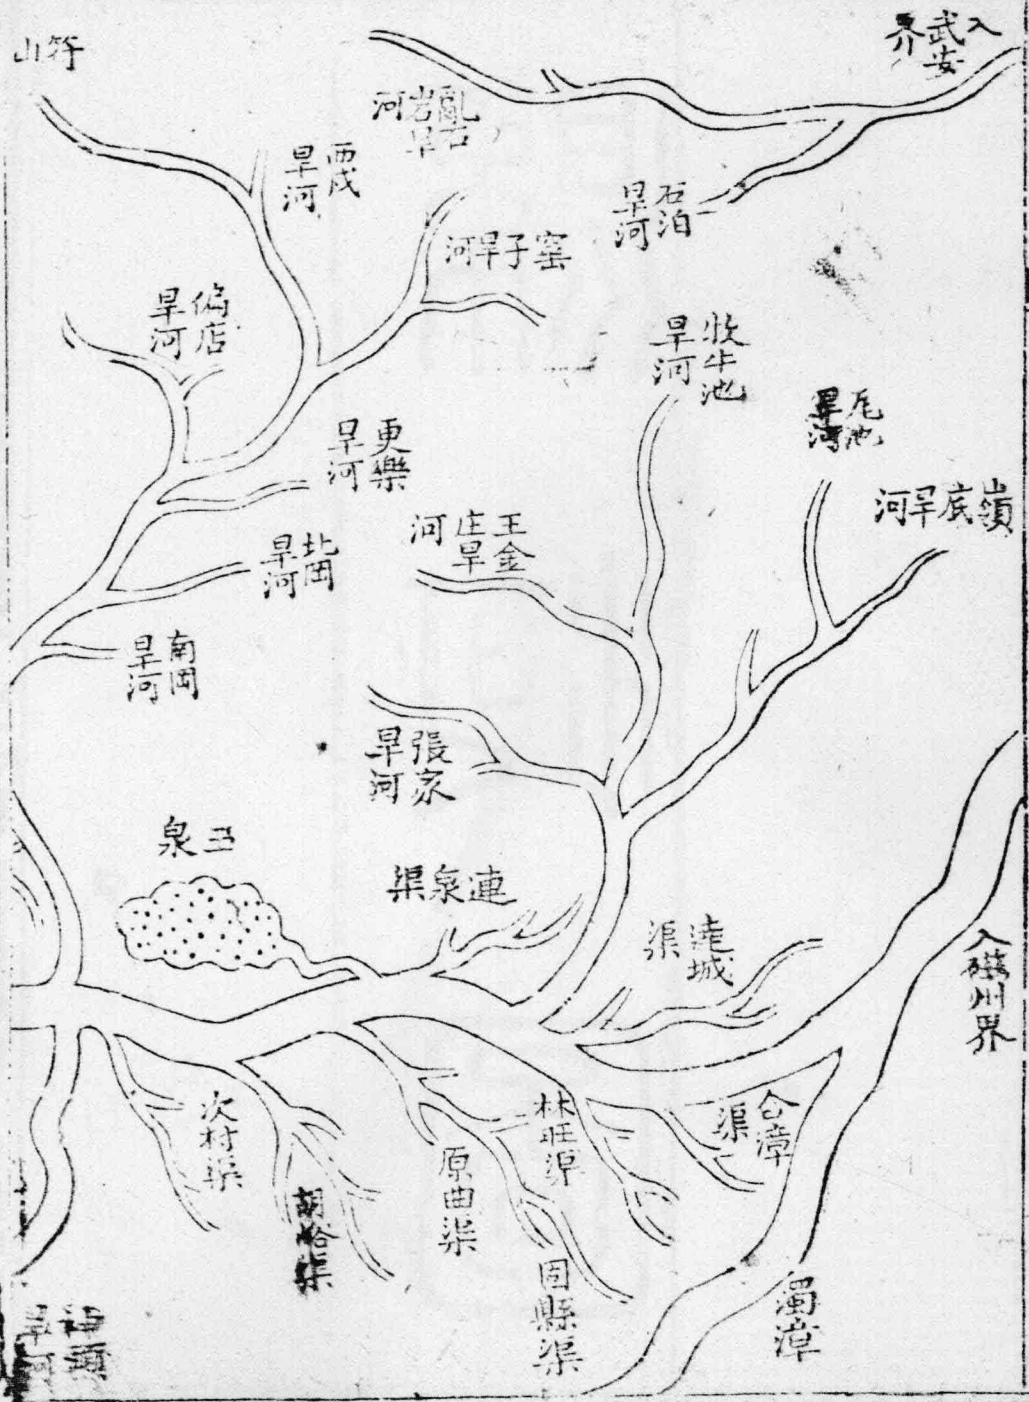 入武安界
符山
亂石岩旱河
西戌旱河
石泊旱河
窰子旱河
偏店旱河
牧牛池旱河
更樂旱河
嶺底旱河
王金庄旱河
北岡旱河
南岡旱河
張家旱河
泉
連泉渠
渠城
入磁州界
次村渠
胡峪渠
原曲渠
林旺渠
合漳渠
固縣渠
濁漳
神頭旱河